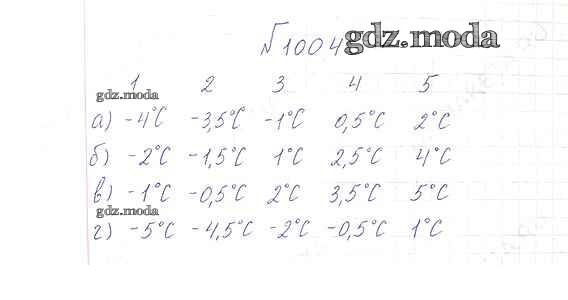 №1004 gdz.moda
1 2 3 4 5
gdz.moda
а) -4°C -3,5°C -1°C 0,5°C 2°C
б) -2°C -1,5°C 1°C 2,5°C 4°C
в) -1°C -0,5°C 2°C 3,5°C 5°C
gdz.moda
г) -5°C -4,5°C -2°C -0,5°C 1°C